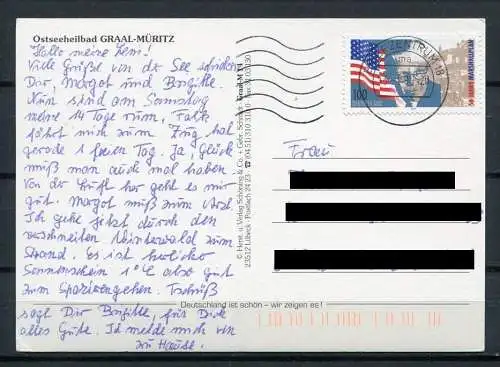 Ostseeheilbad GRAAL-MÜRITZ
Hallo meine Leni!
Viele Grüße von der See schicken
Dir, Margot und Brigitte.
Nun sind am Samstag
meine 14 Tage rum, Falk
fährt mich zum Zug, hat
gerade 1 freien Tag. Ja, Glück
muß man auch mal haben
Von der Luft her geht es mir
gut. Margot muß zum Arzt.
Ich gehe jetzt durch den
verschneiten Winterwald zum
Strand. Es ist herrlicher
Sonnenschein 1°C also gut
zum Spazierengehen. Tschüß
sagt Dir Brigitte, für Dich
alles Gute. Ich melde mich von
zu Hause.
Deutschland ist schön – wir zeigen es!
© Herst. u. Verlag Schöning & Co. + Gebr. Schmidt
23512 Lübeck · Postfach 24 23
100
50 JAHRE MARSHALLPLAN
ZENTRUM 18
Frau